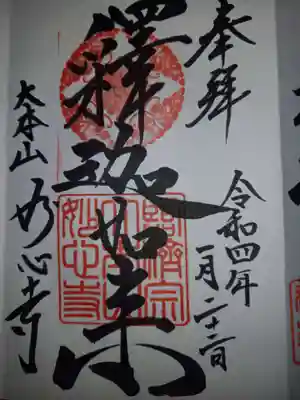 奉拝
令和四年
一月二十二日
釋迦如来
大本山 妙心寺
臨濟宗
大本山
妙心寺